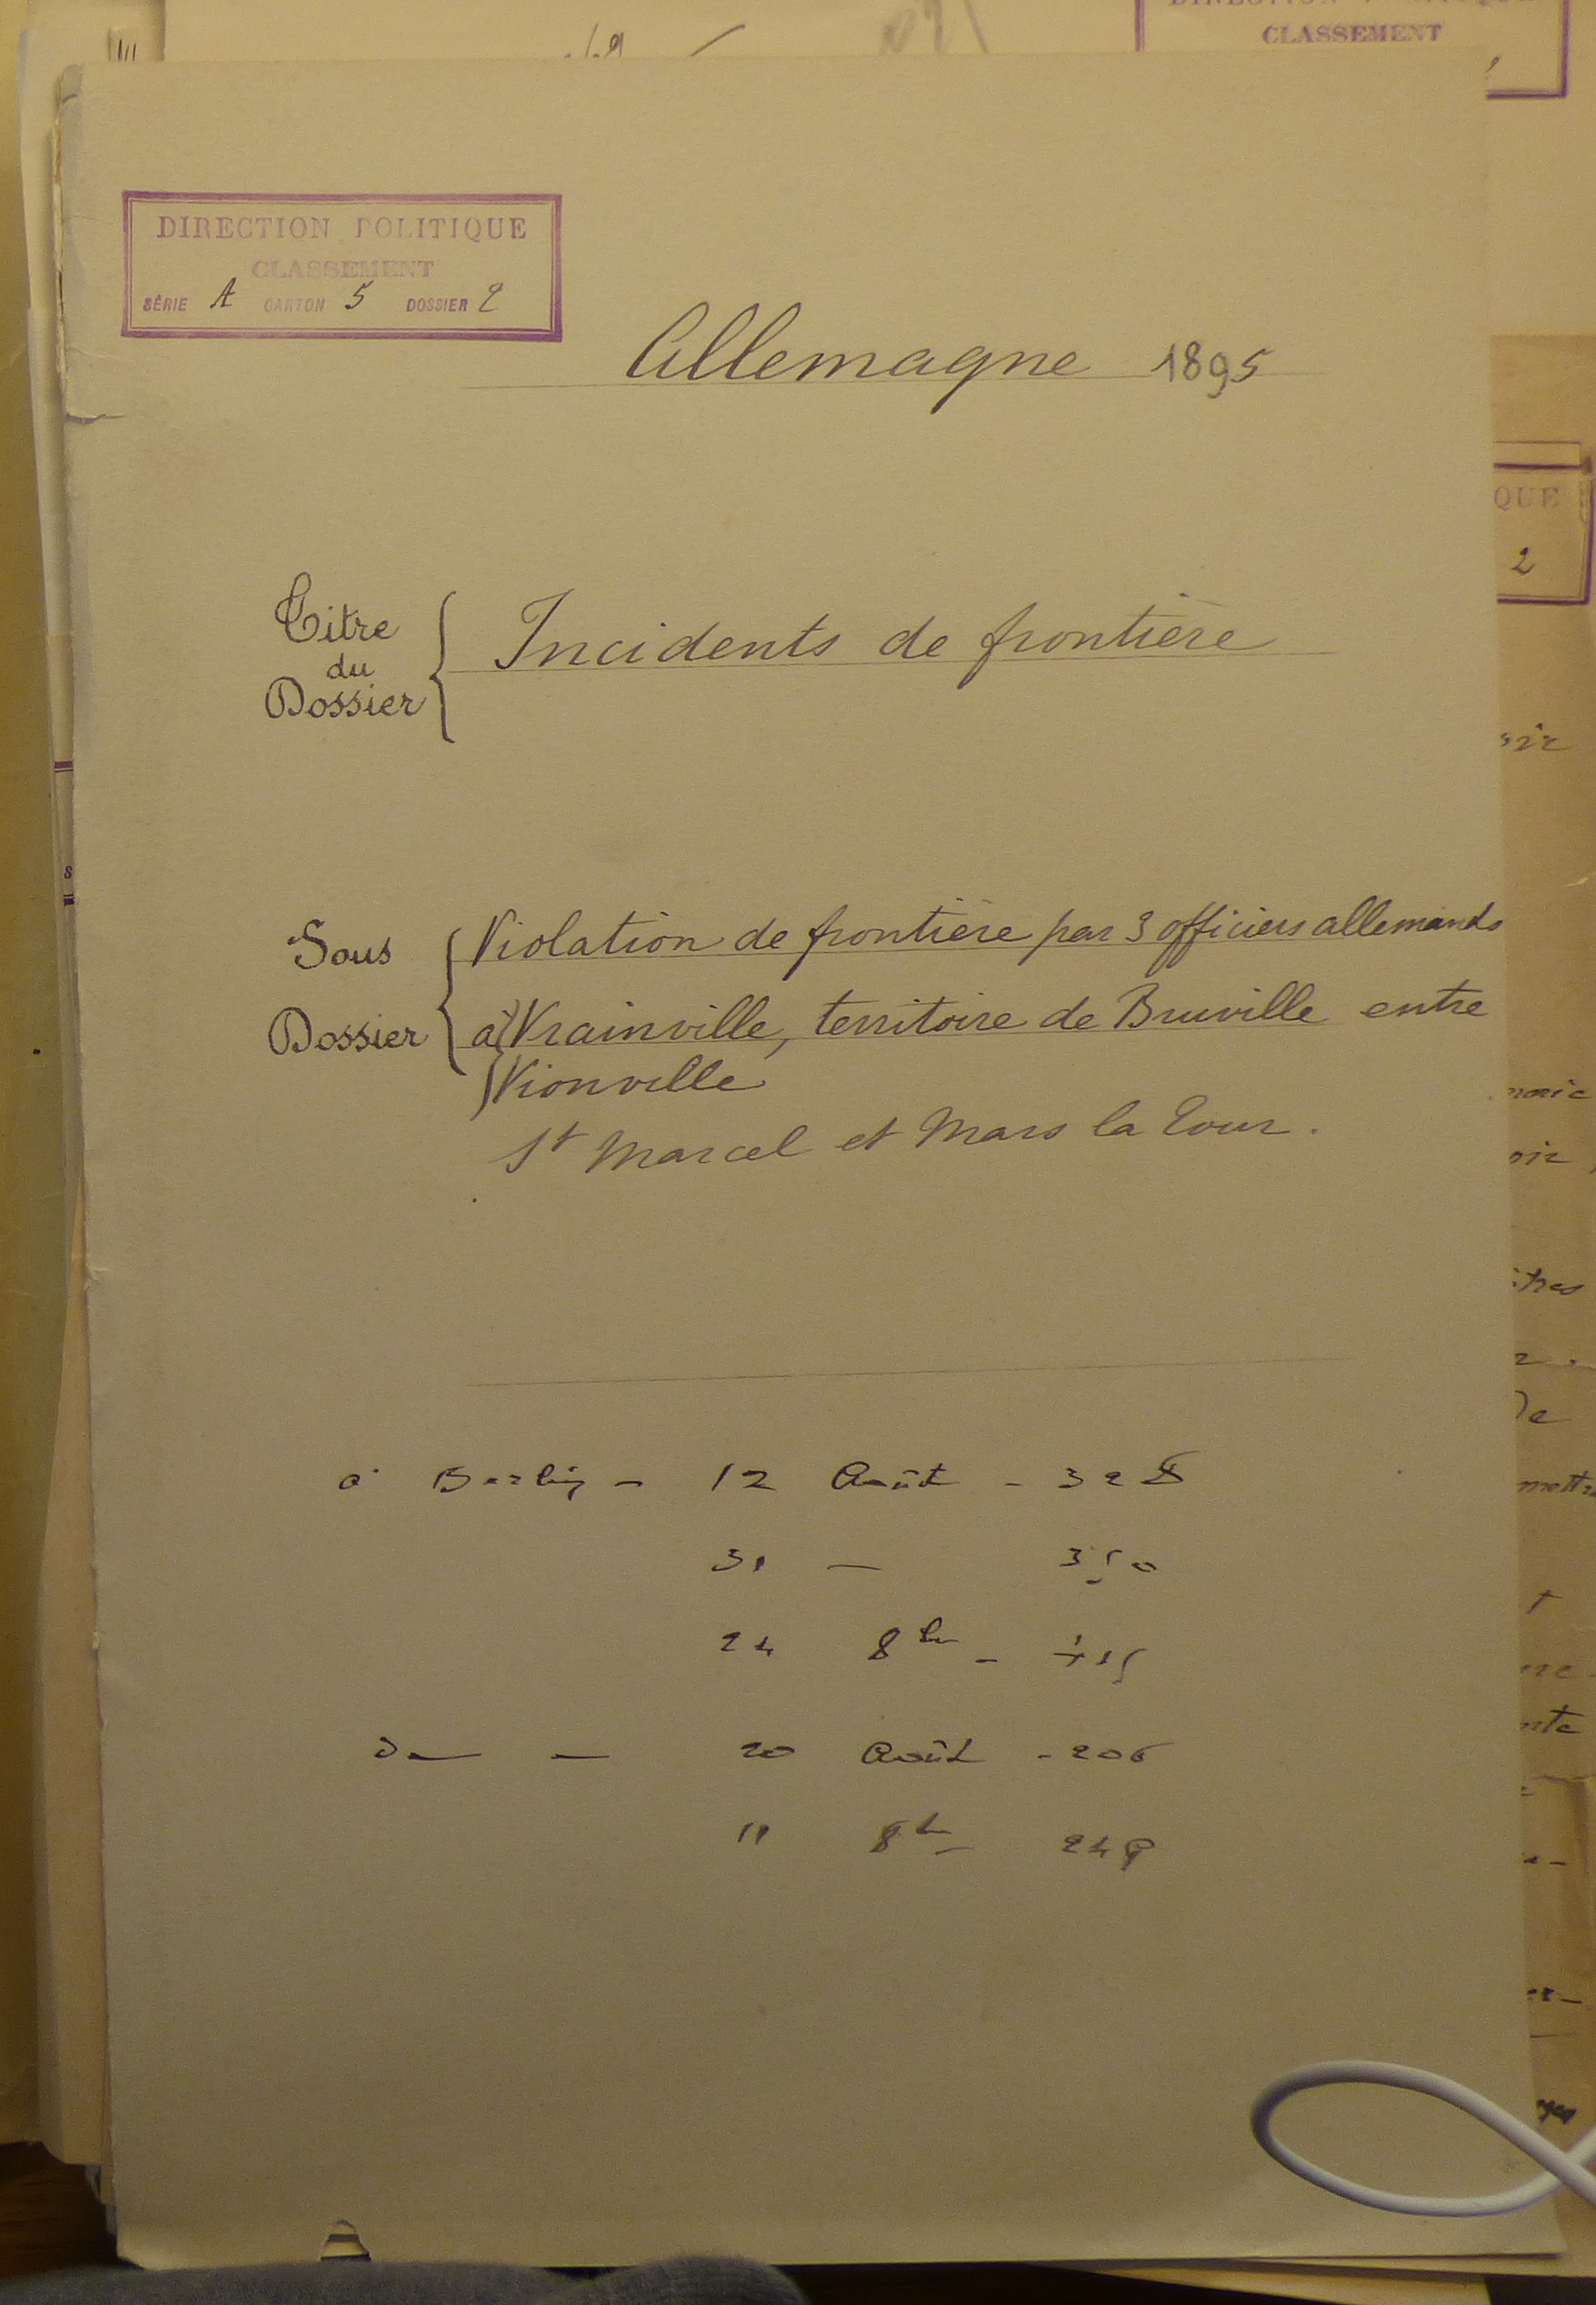 CLASSEMENT
DIRECTION POLITIQUE
CLASSEMENT
SÉRIE A CARTON 5 DOSSIER 2
Allemagne 1895
QUE
2
Titre
du
Dossier
Incidents de frontière
Sous
Dossier
Violation de frontière par 3 officiers allemands
à Vrainville, territoire de Bruville entre
Vionville
St Marcel et Mars la Tour.
à Berlin - 12 Août - 328
31 — 350
24 8bre -
De — — 20 Août - 206
11 8bre 249